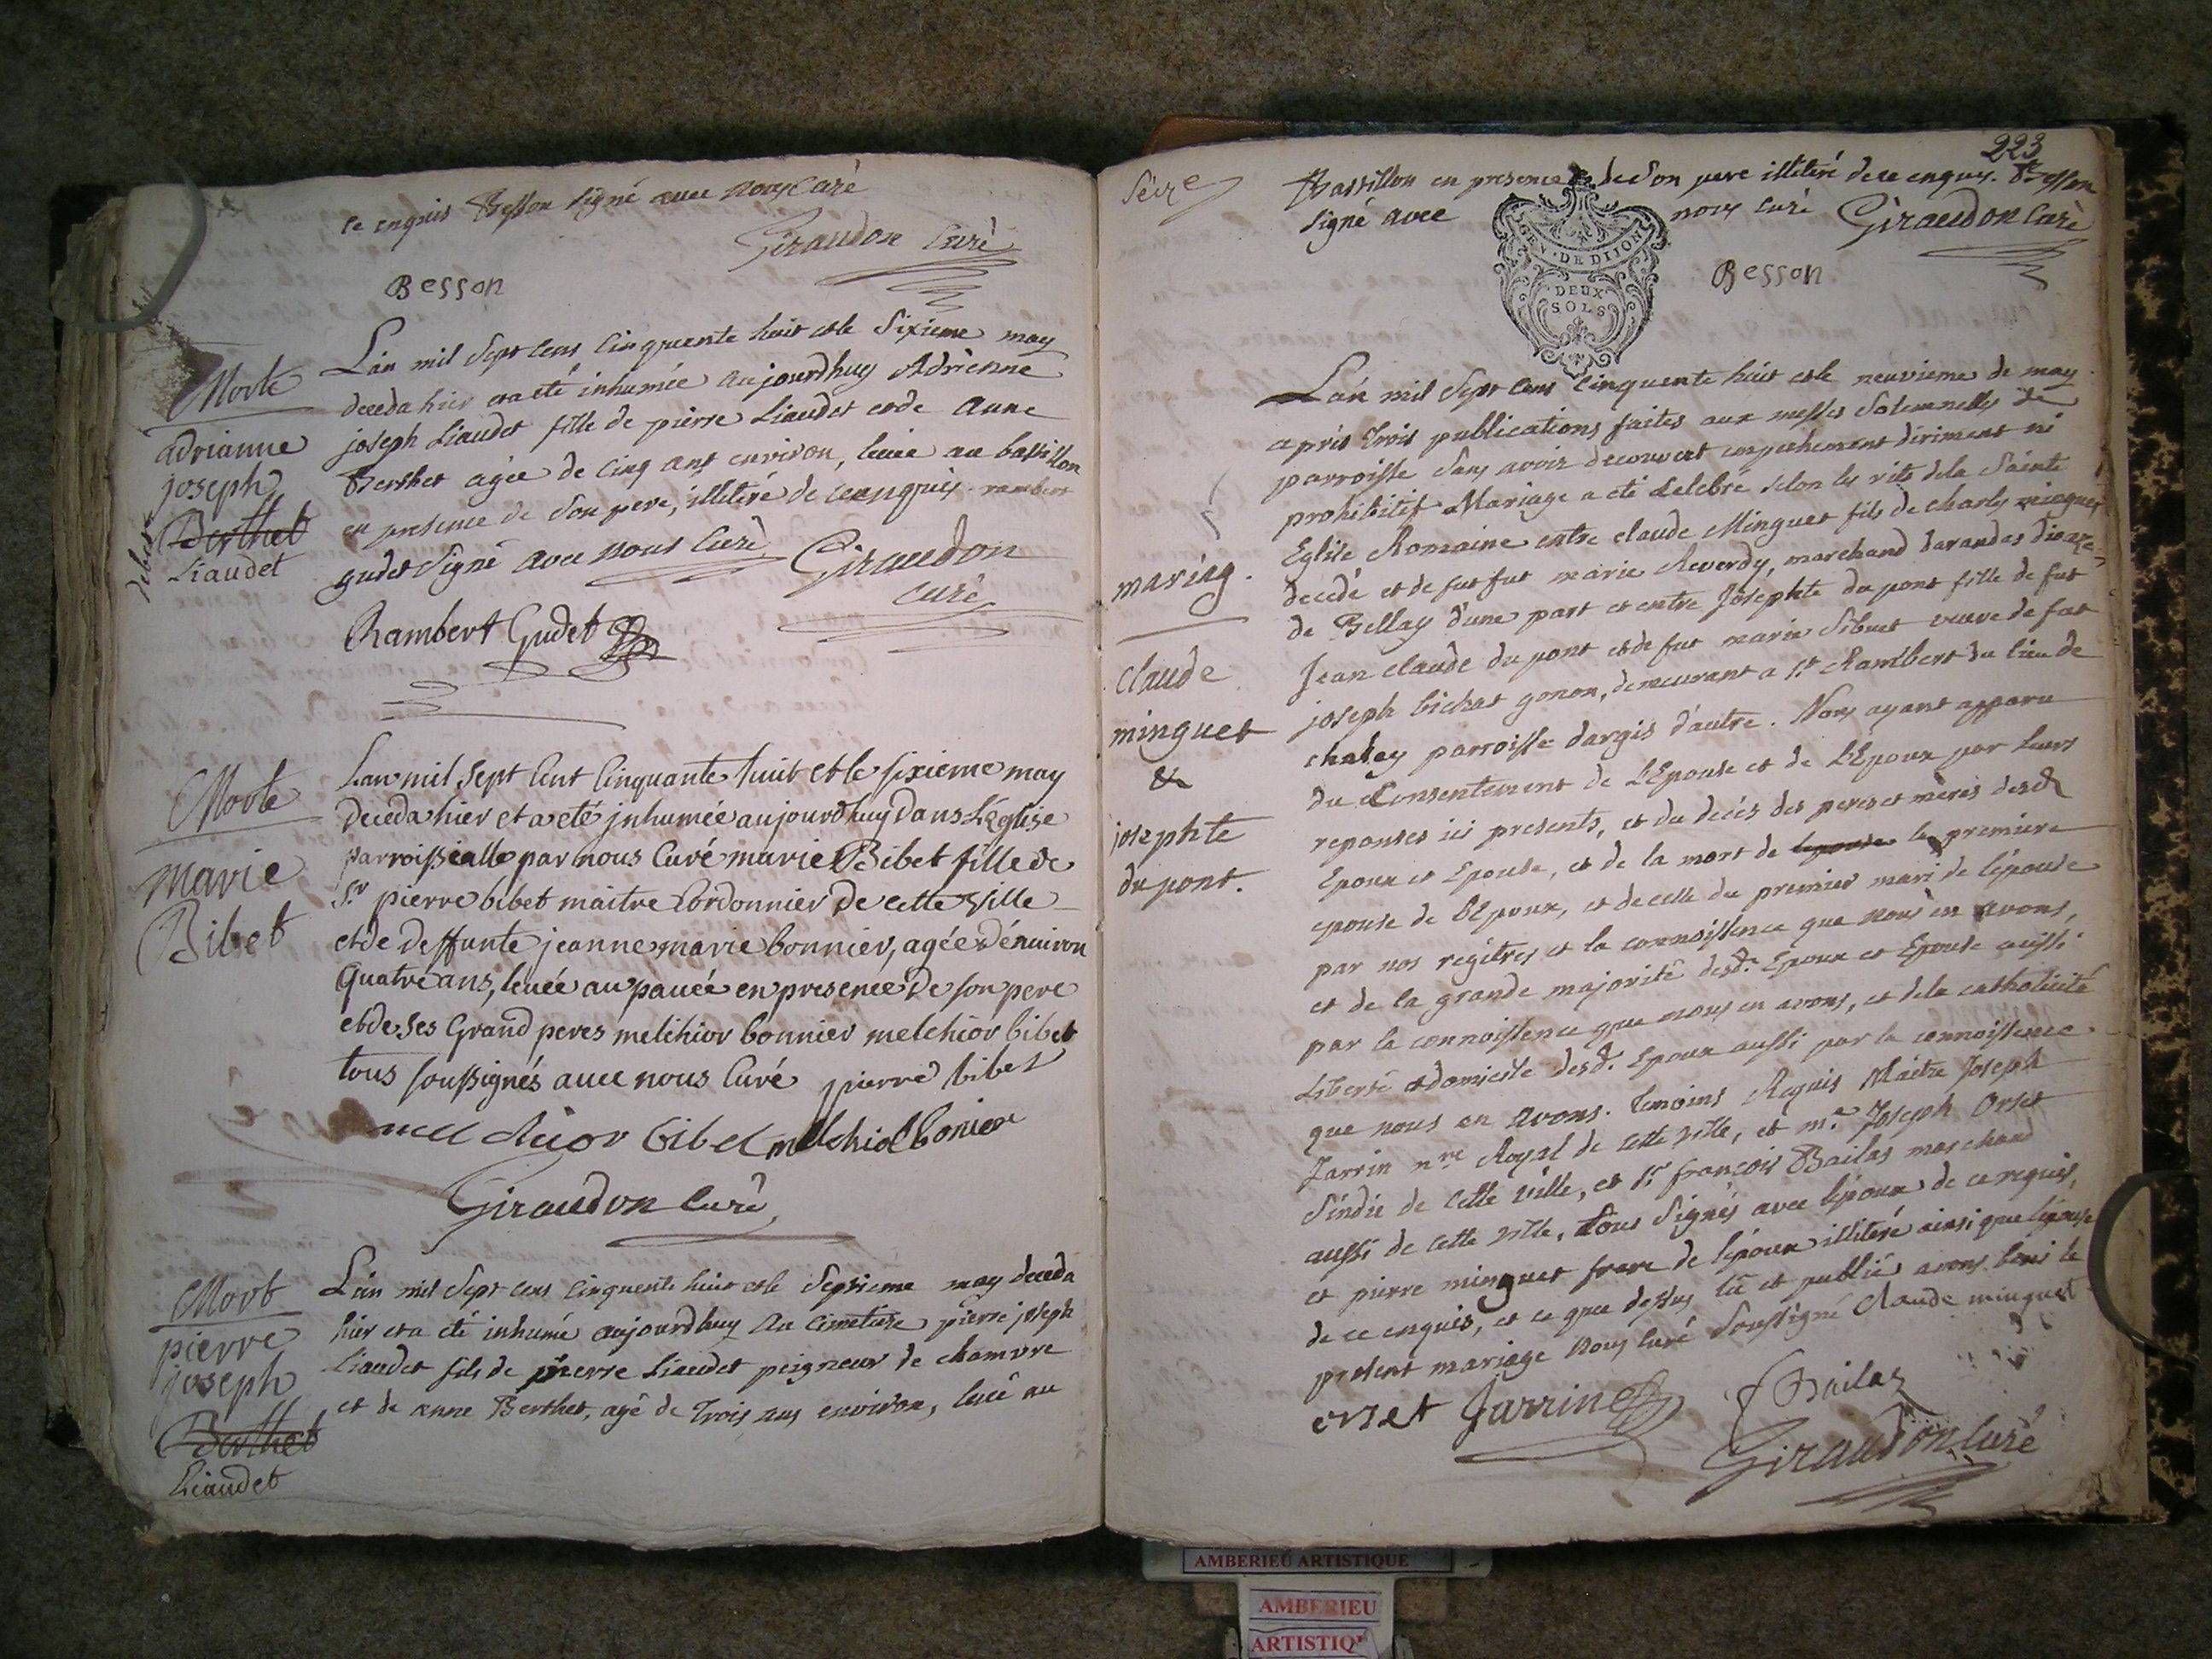 ce enquis Besson signé avec nous Curé
Giraudon Curé
Besson
Morte
adrianne
joseph
Berthet
Liaudet
L'an mil sept cens cinquente huit et le sixieme may
deceda hier et a eté inhumée aujourdhuy Adrienne
joseph Liaudet fille de pierre Liaudet et de Anne
Berthet agée de cinq ans environ, levée au bastillon
en presence de son pere, illiteré de ce enquis. rambert
gudet signé avec nous Curé Giraudon
Curé
Rambert Gudet
Morte
marie
Bibet
Lan mil sept Cent Cinquante huit et le sixieme may
deceda hier et a eté jnhumée aujourdhuy dans L'église
parroissialle par nous Curé marie Bibet fille de
Sr pierre bibet maitre Cordonnier de cette ville
et de deffunte jeanne marie bonnier, agée d'énuiron
quatre ans, leuée au paueé en presence de son pere
et de ses Grand peres melchior bonnier melchior bibet
tous soussignés auec nous Curé pierre bibet
melchior bibet melchiol bonier
Giraudon Curé
Mort
pierre
joseph
Berthet
Liaudet
L'an mil sept cens cinquente huit et le septieme may deceda
hier et a eté inhumé aujourdhuy au cimetiere pierre joseph
Liaudet fils de pierre Liaudet peigneur de chamvre
et de anne Berthet, agé de trois ans environ, levé au
223
Seize
Bastillon en presence de son pere illiteré de ce enquis. Besson
signé avec nous curé Giraudon Curé
GEN. DE DIJON
DEUX
SOLS
Besson
mariag.
claude
minguet
&
josephte
du pont.
L'an mil sept cens cinquente huit et le neuvieme de may
après trois publications faites aux messes solemnelles de
parroisse sans avoir decouvert empechement dirimant ni
prohibitif Mariage a eté celebré selon les rits de la Sainte
Eglise Romaine entre claude Minguet fils de charly minguet
decedé et de fut marie Reverdy, marchand
de Bellay d'une part et entre Josephte du pont fille de fut
Jean claude du pont et de fut marie Sibuet veuve de fut
joseph bichat gonon, demeurant a St Rambert du lieu de
chaley parroisse dargis d'autre. Nous ayant apparu
du Consentement de L'Epouse et de L'Epoux par leurs
reponses ici presents, et du decés des peres et mères desd.
Epoux et Epouse, et de la mort de lepouse la premiere
epouse de l'Epoux, et de celle du premier mari de l'épouse
par nos régitres et la connoissence que nous en avons,
et de la grande majorité desd. Epoux et Epouse aussi
par la connoissence que nous en avons, et de la catholicité
Liberté et domicile desd. Epoux aussi par la connoissence
que nous en avons. temoins Requis Maitre Joseph
Jarrin nre Royal de cette ville, et mr. Joseph Orset
Sindic de cette ville, et Sr françois Bailas marchand
aussi de cette ville, tous signés avec l'epoux de ce requis,
et pierre minguet frere de lépoux illiteré ainsi que lepouse
de ce enquis, et ce que dessus lû et publié avons beni le
present mariage nous Curé soussigné Claude minguet
orset Jarrin f Bailas
Giraudon Curé
AMBERIEU ARTISTIQUE
AMBERIEU
ARTISTIQ